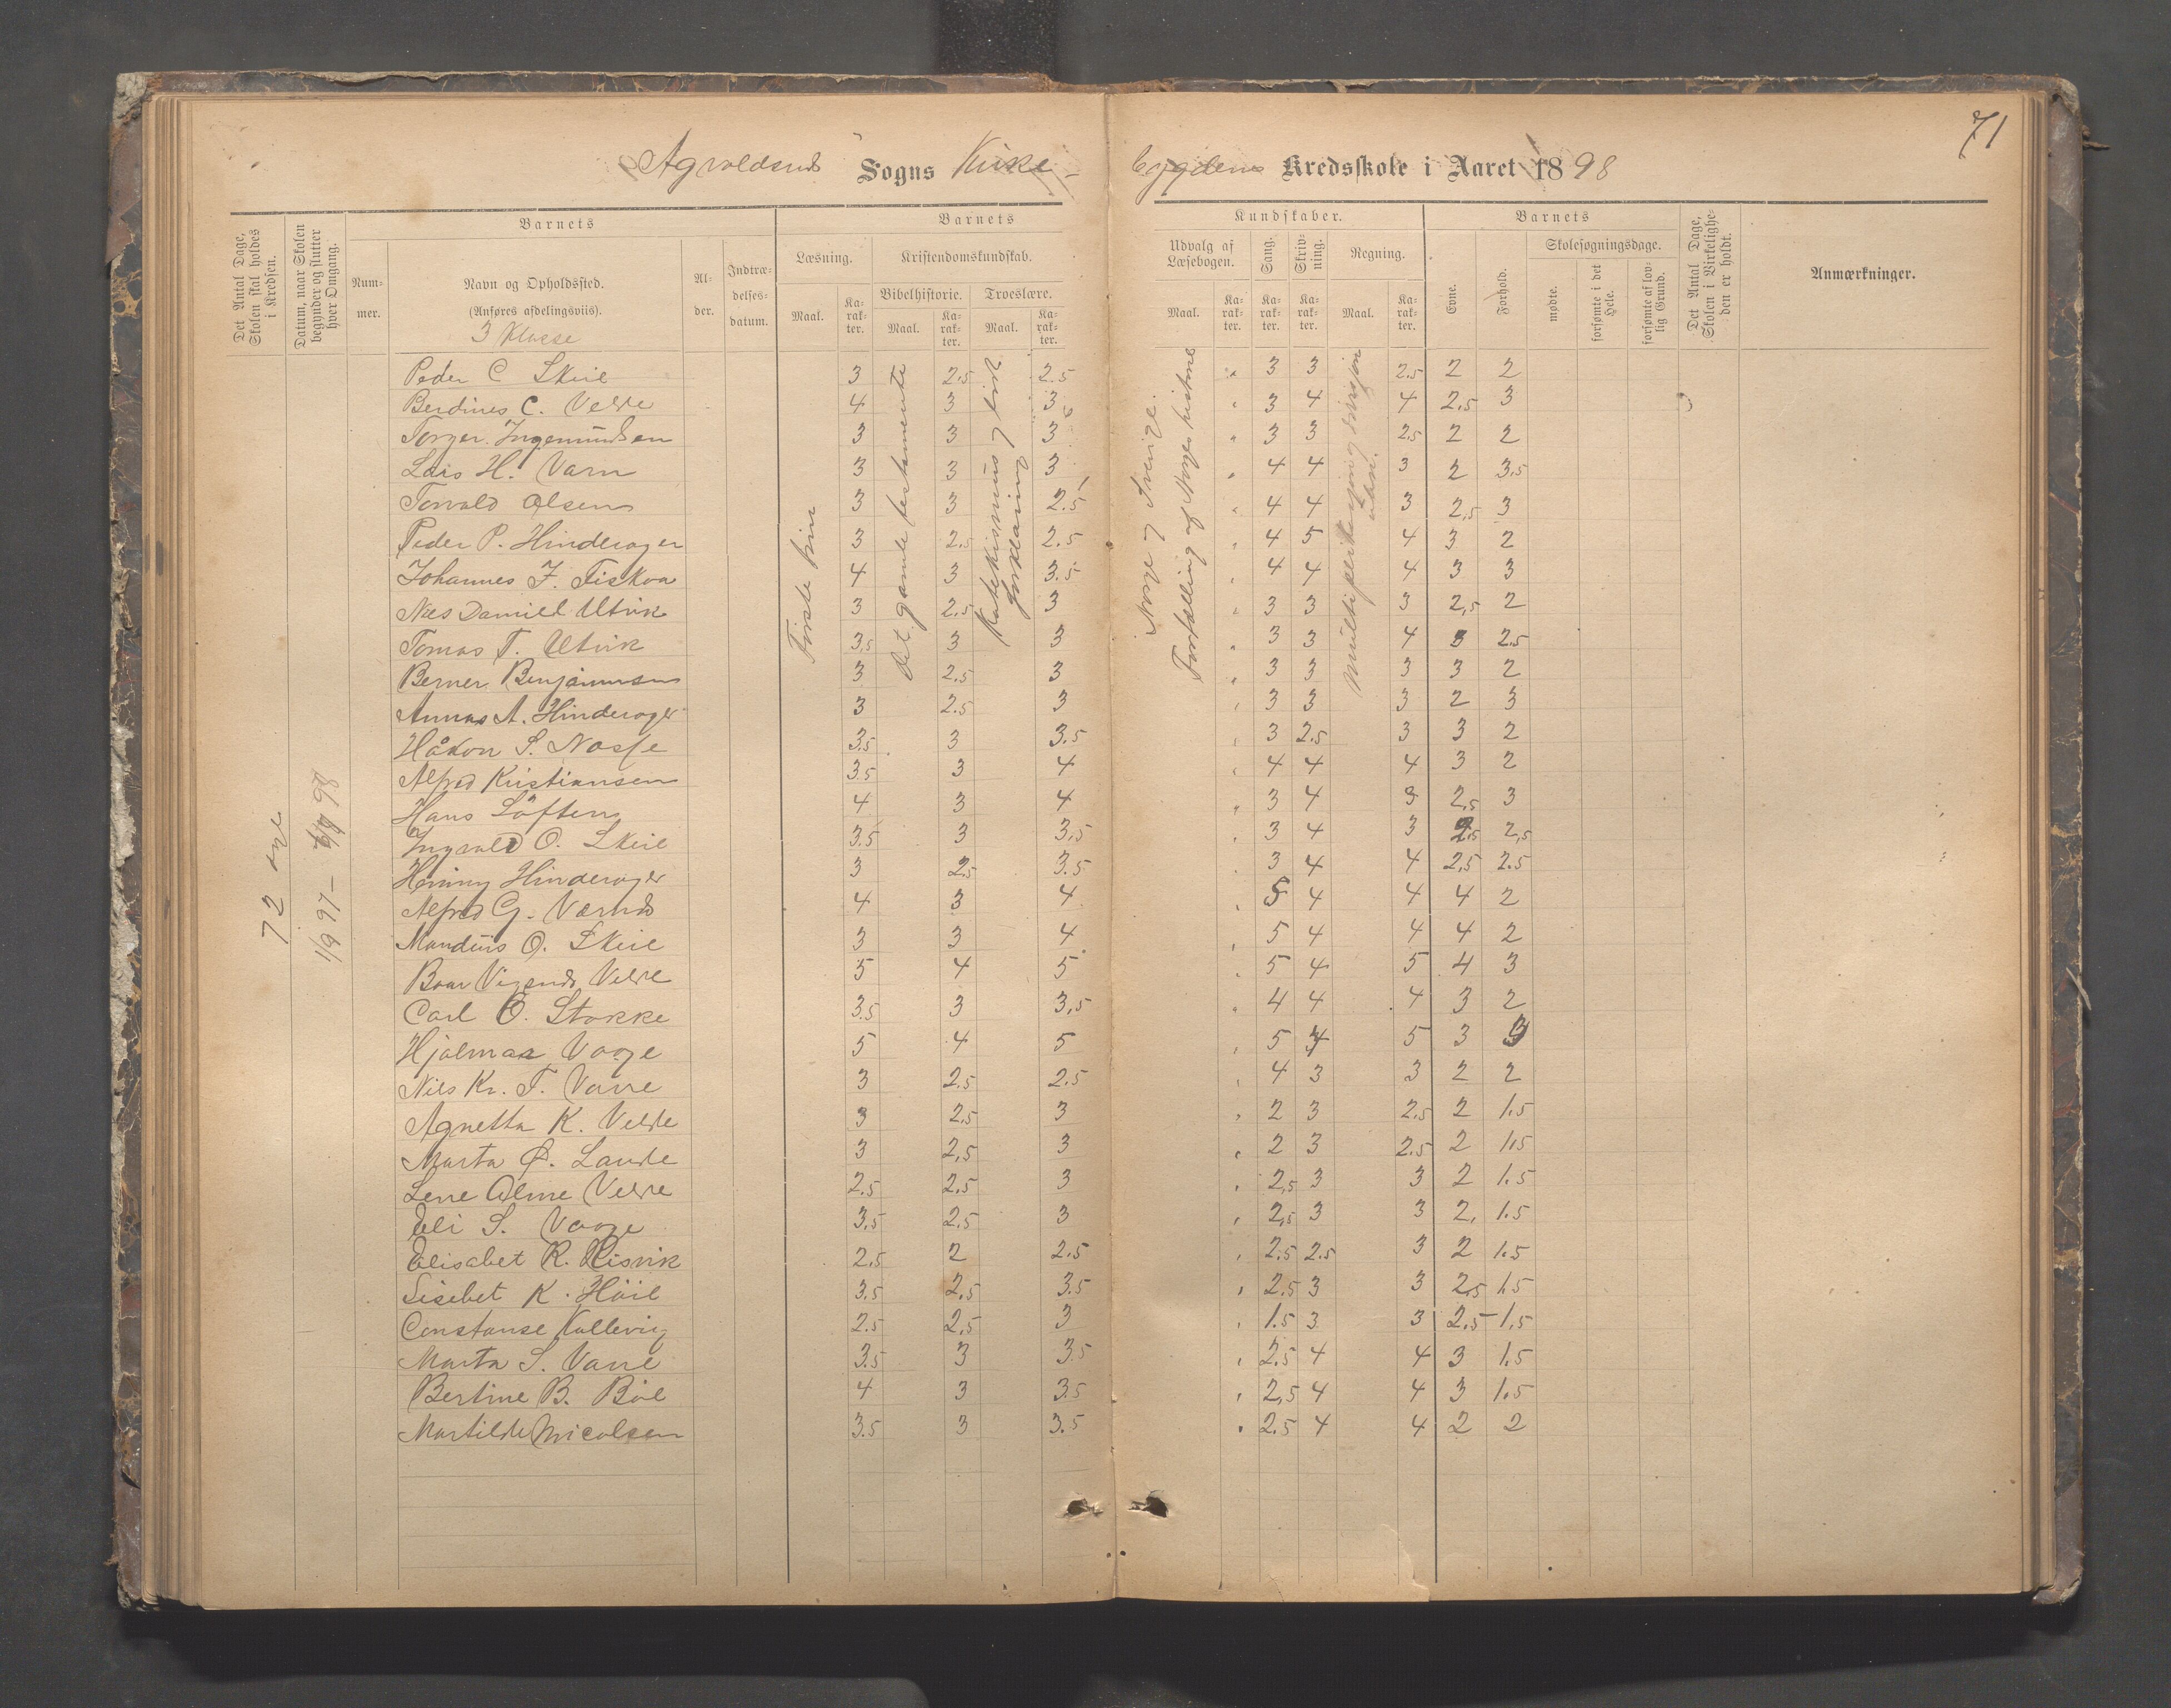 71
Sogns Kirke-
bygdens Kredsskole i Aaret 1898
Det Antal Dage, Skolen skal holdes i Kredsen.
Datum, naar Skolen begynder og slutter hver Omgang.
Barnets
Num-mer.
Navn og Opholdssted.
(Anføres afdelingsviis).
3 Klasse
Al-der.
Indtræ-delses-datum.
Barnets
Læsning.
Maal.
Ka-rak-ter.
Kristendomskundskab.
Bibelhistorie.
Maal.
Ka-rak-ter.
Troeslære.
Maal.
Ka-rak-ter.
Kundskaber.
Udvalg af Læsebogen.
Maal.
Ka-rak-ter.
Sang.
Ka-rak-ter.
Skriv-ning.
Ka-rak-ter.
Regning.
Maal.
Ka-rak-ter.
Barnets
Evne.
Forhold.
Skolesøgningsdage.
mødte.
forsømte i det Hele.
forsømte af lov-lig Grund.
Det Antal Dage, Skolen i Virkelighe-den er holdt.
Anmærkninger.
72
1/9 97 – 98
Det gamle testamente
Katekismus og
forklaring
Norge og Sverige.
Fortælling af Norges historie
Multiplikasjon og divisjon
Peder C Skeie 3 2.5 2.5 " 3 3 2.5 2 2
Berdines C. Velde 4 3 3 " 3 4 4 2,5 3
Torger Ingemundsen 3 3 3 " 3 3 2.5 2 2
Lais H. Varn 3 3 3 " 4 4 3 2 3,5
Torvald Olsen 3 3 2.5 " 4 4 3 2,5 3
Peder P. Hinderager 3 2.5 2.5 " 4 5 4 3 2
Johannes J. Fiskaa 4 3 3.5 " 4 4 4 3 3
Nils Daniel Utvik 3 2.5 3 " 3 3 3 2,5 2
Tomas T. Utvik 3,5 3 3 " 3 3 4 3 2.5
Berner Benjaminsen 3 2,5 3 " 3 3 3 3 2
Annas A. Hinderager 3 2.5 3 " 3 3 3 2 3
Håkon S. Nosse 3.5 3 3.5 " 3 2.5 3 3 2
Alfred Kristiansen 3.5 3 4 " 4 4 4 3 2
Hans Löften 4 3 4 " 3 4 3 2,5 3
Ingvald O. Skeie 3.5 3 3,5 " 3 4 3 2,5 2,5
Hinderager 3 2.5 3.5 " 3 4 4 2,5 2.5
Alfred G. 4 3 4 " 5 4 4 4 2
Mandius O. Skeie 3 3 4 " 5 4 4 4 2
Velde 5 4 5 " 5 4 5 4 3
Carl O. Stokke 3.5 3 3,5 " 4 4 4 3 2
Hjalmar Vaage 5 4 5 " 5 4 5 3 3
Nils Kr. T. Varre 3 2.5 2.5 " 4 3 3 2 2
Agnetha K. Velde 3 2,5 3 " 2 3 2.5 2 1.5
Marta Lande 3 2,5 3 " 2 3 2.5 2 1.5
Lene Oline Velde 2.5 2,5 3 " 2,5 3 3 2 1.5
Eli S. Vaage 3,5 2.5 3 " 2,5 3 3 2, 1.5
Elisabet R. Risvik 2,5 2 2.5 " 2.5 2.5 3 2 1.5
Lisebet K. Höie 3.5 2.5 3.5 " 2.5 3 3 2,5 1.5
Constanse Kallevig 2.5 2,5 3 " 1.5 3 3 2.5 1,5
Marta S. Varre 3.5 3 3.5 " 2.5 4 4 3 1.5
Bertine B. Böe 4 3 3.5 " 2,5 4 4 3 1.5
Martilde Nicolsen 3.5 3 3.5 " 2.5 4 4 2 2